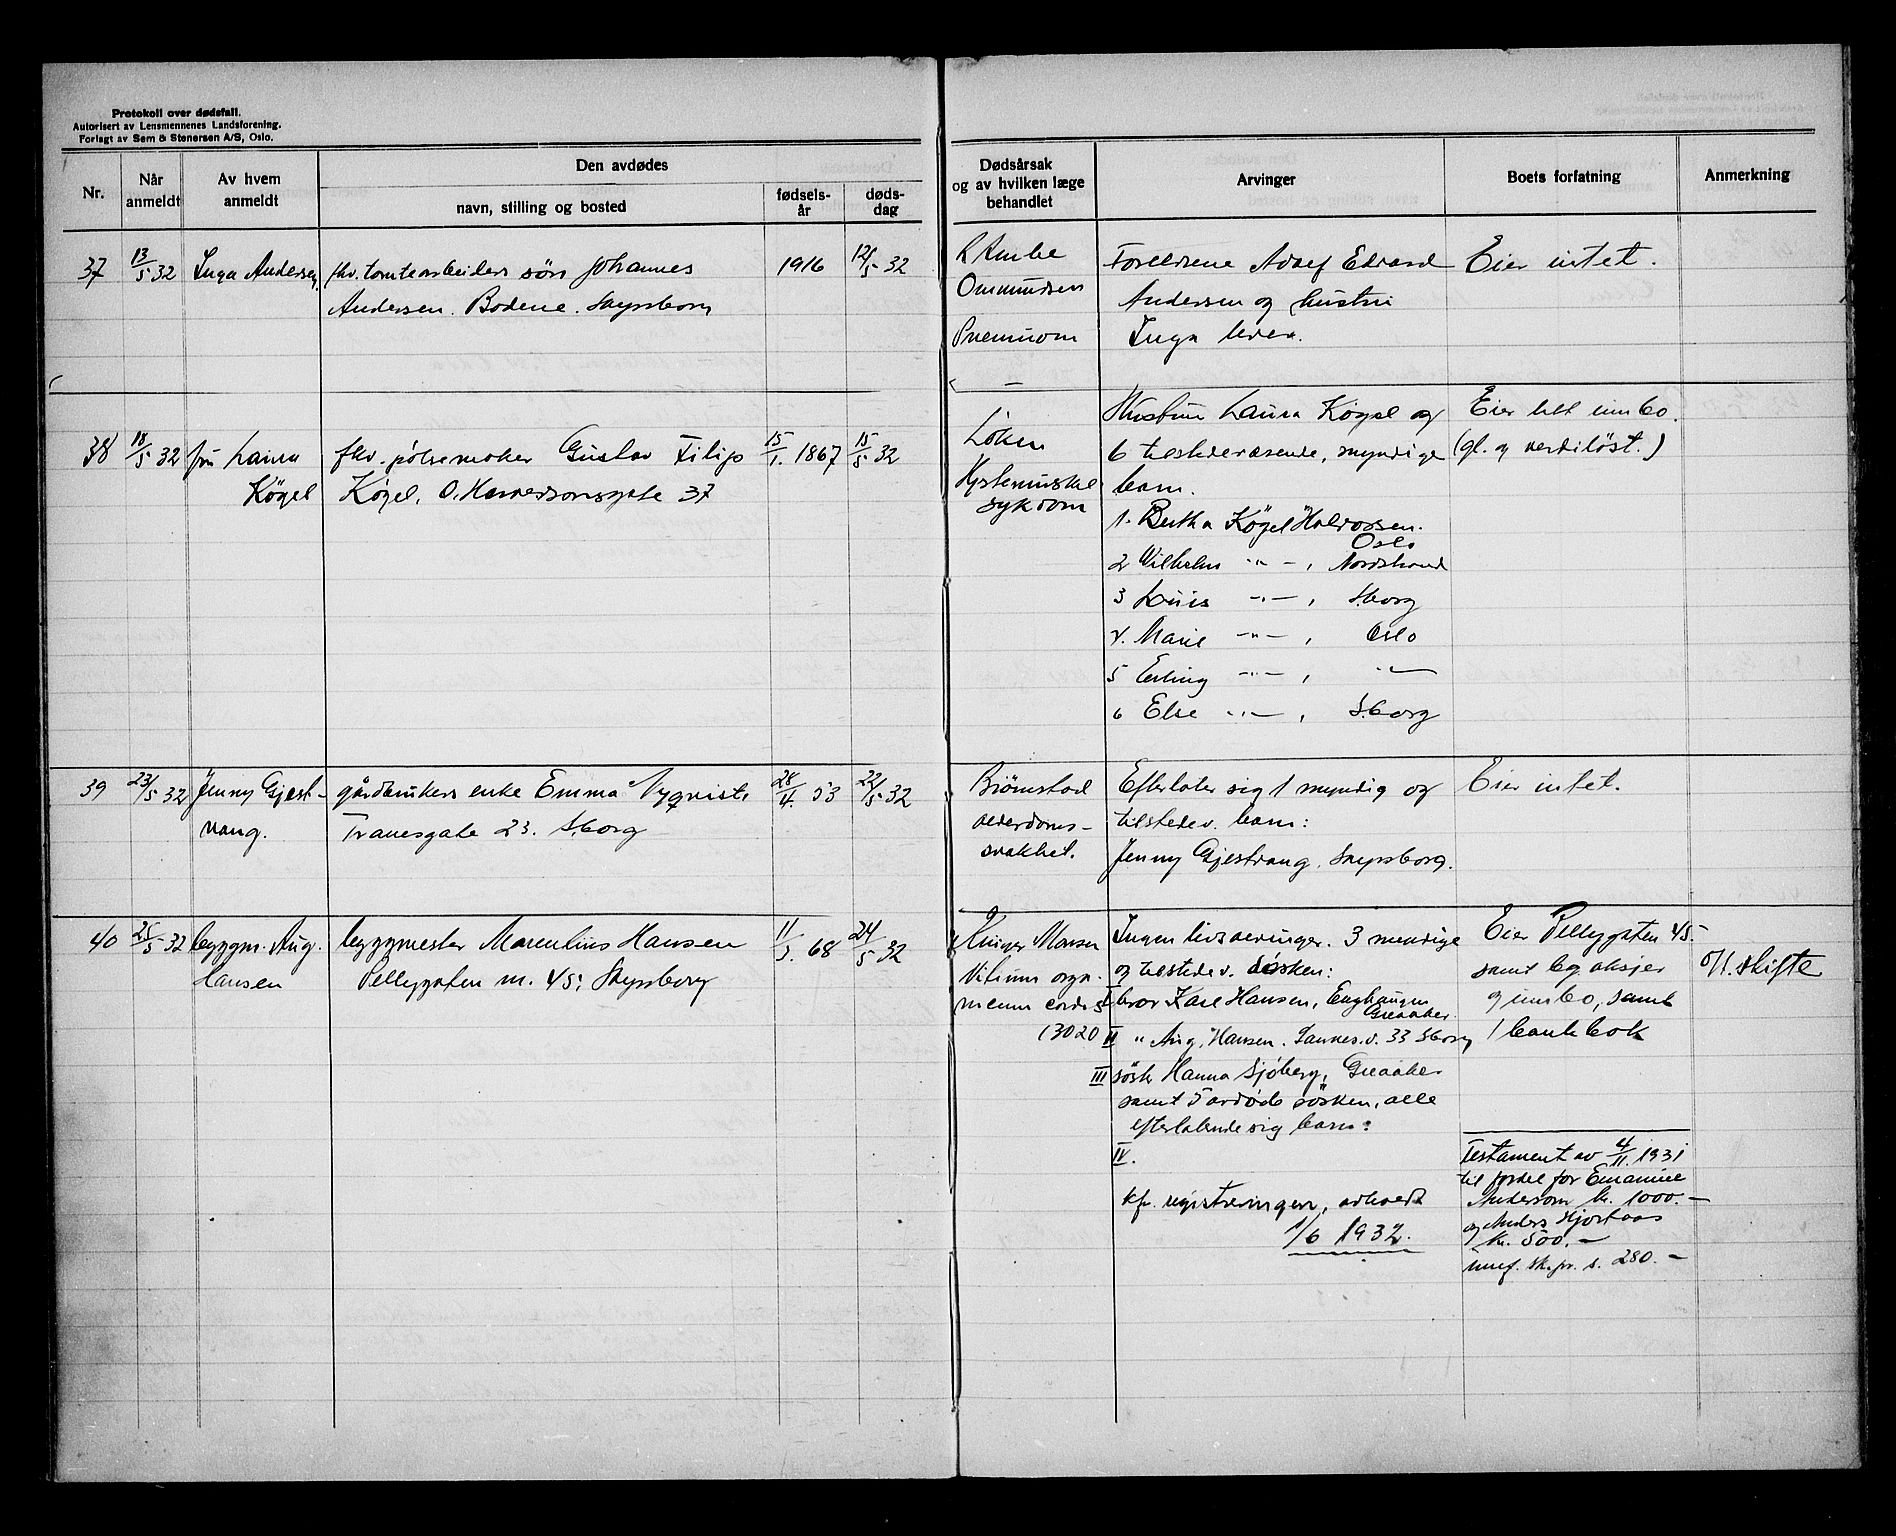 Protokoll over dødsfall.
Autorisert av Lensmennenes Landsforening.
Forlagt av Sem & Stenersen A/S, Oslo.
Nr.
Når anmeldt
Av hvem anmeldt
Den avdødes
navn, stilling og bosted
fødsels-år
døds-dag
Dødsårsak og av hvilken læge behandlet
Arvinger
Boets forfatning
Anmerkning
37
13/5 32
Inga Andersen
fhv. tomtearbeiders sön Johannes
Andersen. Bodene. Sarpsborg
1916
12/5 32
Ombudsen
Pneumoni
Foreldrene Adolf Edvard
Andersen og hustru
Inga lever.
Eier intet.
38
18/5 32
fru Laura
Kögel
fhv. pölsemaker Gustav Filip
Kögel, O. Haraldsonsgate 37
15/1. 1867
15/5 32
Löken
sykdom
Hustru Laura Kögel og
6 tilstedeværende, myndige
barn.
1. Bertha Kögel Halvorsen.
Oslo
2 Wilhelm -"- , Nordstrand
3 Louis -"- , S.borg
4. Marie -"- , Oslo
5 Erling -"- , -"-
6 Else -"- , S.borg
Eier litt innbo.
(gl. og verdilöst.)
39
23/5 32
Jenny Gjest-
vang.
gårdbrukers enke Emma Nyqvist,
Tranesgate 23. S.borg
28/4. 53
22/5 32
Björnstad
alderdoms-
svakhet.
Efterlater sig 1 myndig og
tilstedev. barn:
Jenny Gjestvang, Sarpsborg.
Eier intet.
40
25/5 32
byggm. Aug.
Hansen
byggmester Marentius Hansen
Pellygaten nr. 45, Sarpsborg
11/3. 68
24/5 32
Vitium orga-
nicum cordis
(3020
Ingen livsarvinger. 3 myndige
og tilstedev. sösken:
I bror Karl Hansen, Enghaugen
Greaaker
II " Aug. Hansen. Sannes.v. 33 Sborg
III söst. Hanna Sjöberg, Greaaker
samt 5 avdöde sösken, alle
efterlatende sig barn:
IV.
kfr. registreringen, avholdt
1/6 1932.
Eier Pellygaten 45.
samt bg. aksjer
og innbo, samt
1 bankbok
Off. skifte
Testament av 4/11 1931
til fordel for Emanuel
Anderson kr. 1000.-
og Anders Hjortaas
kr. 500.-
innf. sk.pr. s. 280.-